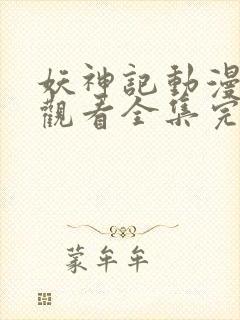 妖神記動漫
觀看全集完
蒙牟牟